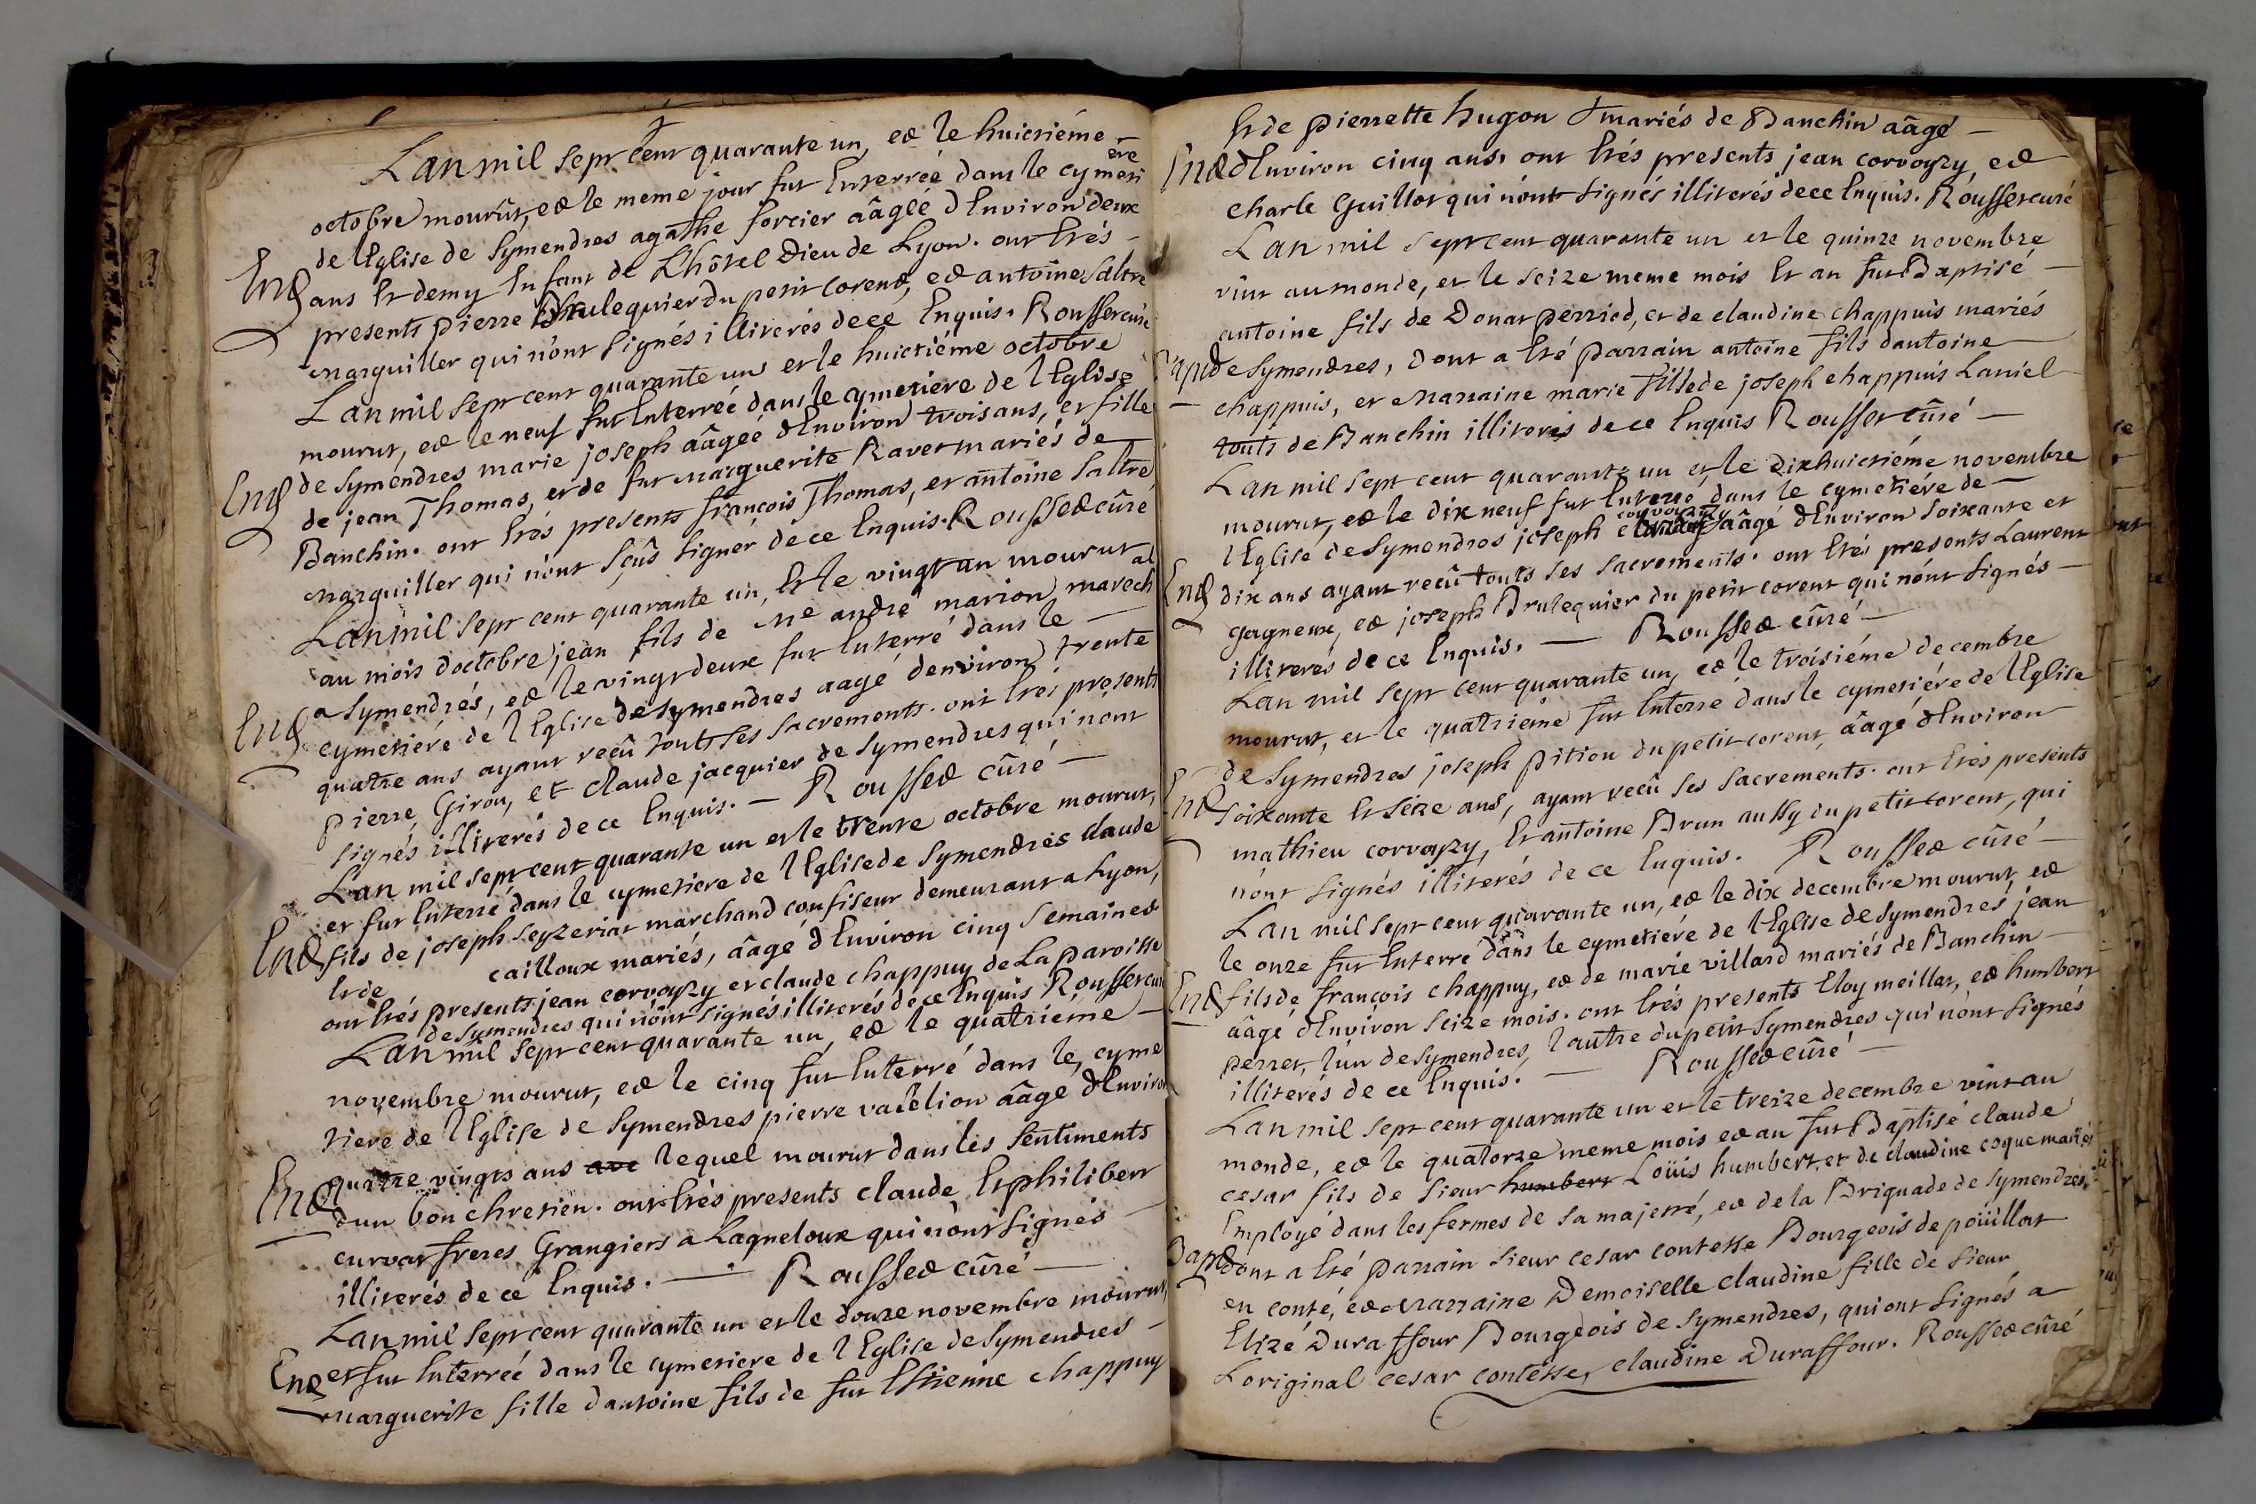 Lan mil sept cent quarante un, et le huictiéme
octobre mourût, et le meme jour fut Enterrée dans le cymetiere
de lEglise de Symendres agathe forcier aâgéé dEnviron deux
Ent ans Et demy Enfant de Lhôtel Dieu de Lyon. ont Etés
presents pierre Brulequier du petit corent, et antoine Saltre
marguiller qui n'ont signés illiterés de ce Enquis. Rousset curé
Lan mil sept cent quarante un et le huictiéme octobre
mourut, et le neuf fut Enterréé dans le cymetiere de lEglise
Ent de Symendres marie joseph aâgéé dEnviron trois ans, et fille
de jean Thomas, et de fut marguerite Ravet mariés de
Banchin. ont Etés presents françois Thomas, et antoine Saltre
marguiller qui n'ont sçûs signer de ce Enquis. Rousset cûré
Lan mil sept cent quarante un, Et le vingt un mourut
au mois doctobre jean fils de Me andre marion marechal
a Symendrés, et le vingt deux fut Enterré dans le
Ent cymetiére de lEglise de Symendres aagé denviron trente
quatre ans ayant reçû touts ses sacrements. ont Etés presents
pierre Girou, et claude jacquier de Symendres qui n'ont
signés illiterés de ce Enquis. — Rousset cûré —
Lan mil sept cent quarante un et le trente octobre mourut,
et fut Enterré dans le cymetiere de lEglise de Symendres claude
Ent fils de joseph seyzeriat marchand confiseur demeurant a Lyon,
Et de cailloux mariés, aâgé dEnviron cinq semaines
ont Etés presents jean corvoyzy et claude chappuy de La paroisse
de Symendres qui n'ont signés illiterés de ce Enquis Rousset curé
Lan mil sept cent quarante un, et le quatriéme
novembre mourut, et le cinq fut Enterré dans le, cyme
tiere de lEglise de Symendres pierre vacelion aâgé dEnviron
Ent quatre vingts ans ave lequel mourut dans les sentiments
dun bon chretien. ont Etés presents claude Et philibert
curvat freres Grangiers a Lagneloux qui n'ont signés
illiterés de ce Enquis. — Rousset cûré —
Lan mil sept cent quarante un et le douze novembre mourut,
Ent et fut Enterréé dans le cymetiere de lEglise de Symendres
marguerite fille dantoine fils de fut Etienne chappuy
Et de pierrette hugon mariés de Banchin aâgé —
Ent dEnviron cinq ans. ont Etés presents jean corvoyzy, et
charle Guillot qui n'ont signés illiterés de ce Enquis. Rousset curé
Lan mil sept cent quarante un et le quinze novembre
vint au monde, et le seize meme mois Et an fut Baptisé —
antoine fils de Donat perriod, et de claudine chappuis mariés
Bapt de Symendres, dont a Eté parrain antoine fils dantoine
chappuis, et marraine marie fille de joseph chappuis Laniel
touts de Banchin illiterés de ce Enquis Rousset cûré —
Lan mil sept cent quarante un et le dixhuictiéme novembre
mourut, et le dix neuf fut Enterré dans le cymetiére de —
corvoyzy
lEglise de Symendres joseph aâgé dEnviron soixante et
Ent dix ans ayant reçû touts ses sacrements. ont Etés presents Laurent
gagneux, et joseph Brulequier du petit corent qui n'ont signés —
illiterés de ce Enquis. — Rousset cûré —
Lan mil sept cent quarante un, et le troisiéme decembre
mourut, et le quatriéme fut Enterré dans le cymetiére de lEglise
de Symendres joseph pition du petit corent, aâgé dEnviron
Ent soixante Et seize ans, ayant reçû ses sacrements. ont Etés presents
mathieu corvoyzy, Et antoine Brun aussy du petit corent, qui
n'ont signés illiterés de ce Enquis. Rousset cûré —
Lan mil sept cent quarante un, et le dix decembre mourut, et
le onze fut Enterré dans le cymetiéré de lEglise de Symendrés jean
Ent fils de françois chappuy, et de marie villard mariés de Banchin —
âagé dEnviron seize mois. ont Etés presents Eloy meillat, et humbert
perret, lun de Symendres, lautre du petit Symendres qui n'ont signés
illiterés de ce Enquis. — Rousset cûré —
Lan mil sept cent quarante un et le treize decembre vint au
monde, et le quatorze meme mois et an fut Baptisé claude
cesar fils de sieur humbert Loüis humbert, et de claudine coque mariés
Employé dans les fermes de sa majesté, et de la Briquade de Symendres,
Bapt dont a Eté parrain sieur cesar contesse Bourgeois de poüillat
en conté, et marraine Demoiselle claudine fille de sieur
Elizé Duraffour Bourgeois de Symendres, qui ont signés a
Loriginal cesar contesse, claudine Duraffour. Rousset cûré